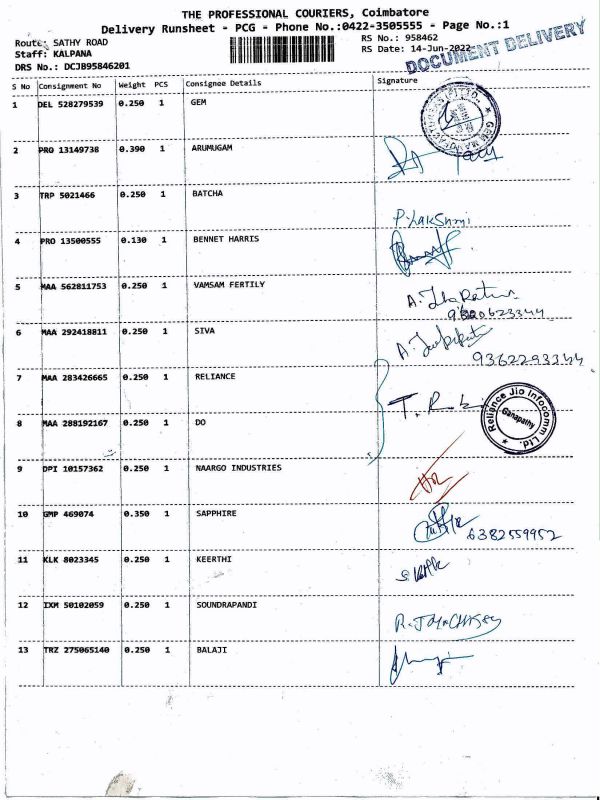 THE PROFESSIONAL COURIERS, Coimbatore
Delivery Runsheet - PCG - Phone No.:0422-3505555 - Page No.:1
Route: SATHY ROAD
RS No.: 958462
Staff: KALPANA
RS Date: 14-Jun-2022
DRS No.: DCJB95846201
DOCUMENT DELIVERY
S No Consignment No Weight PCS Consignee Details Signature
1 DEL 528279539 0.250 1 GEM
2 PRO 13149738 0.390 1 ARUMUGAM
3 TRP 5021466 0.250 1 BATCHA
P. Lakshmi
4 PRO 13500555 0.130 1 BENNET HARRIS
5 MAA 562811753 0.250 1 VAMSAM FERTILY
A.
6 MAA 292418811 0.250 1 SIVA
A.
9362293344
7 MAA 283426665 0.250 1 RELIANCE
T.
Reliance Jio Infocomm Ltd.
Ganapathy
8 MAA 288192167 0.250 1 DO
9 DPI 10157362 0.250 1 NAARGO INDUSTRIES
10 GMP 469074 0.350 1 SAPPHIRE
6382559952
11 KLK 8023345 0.250 1 KEERTHI
12 IXM 50102059 0.250 1 SOUNDRAPANDI
13 TRZ 275065140 0.250 1 BALAJI